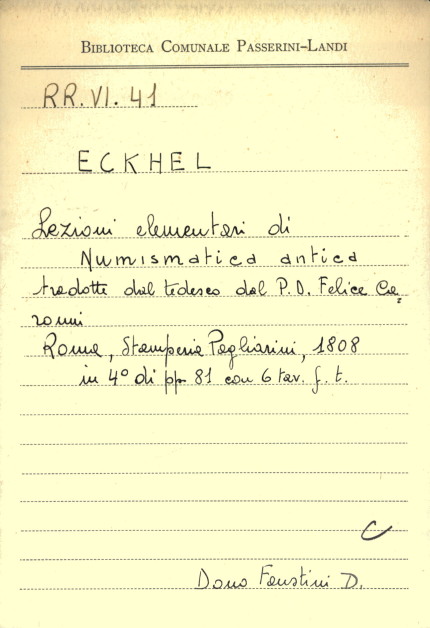 BIBLIOTECA COMUNALE PASSERINI-LANDI
RR. VI. 41
ECKHEL
Lezioni elementari di
Numismatica antica
tradotte dal tedesco dal P. D. Felice Ca=
ronni
Roma, Stamperia Pagliarini, 1808
in 4° di pp 81 con 6 tav. f. t.
C
Dono Faustini D.